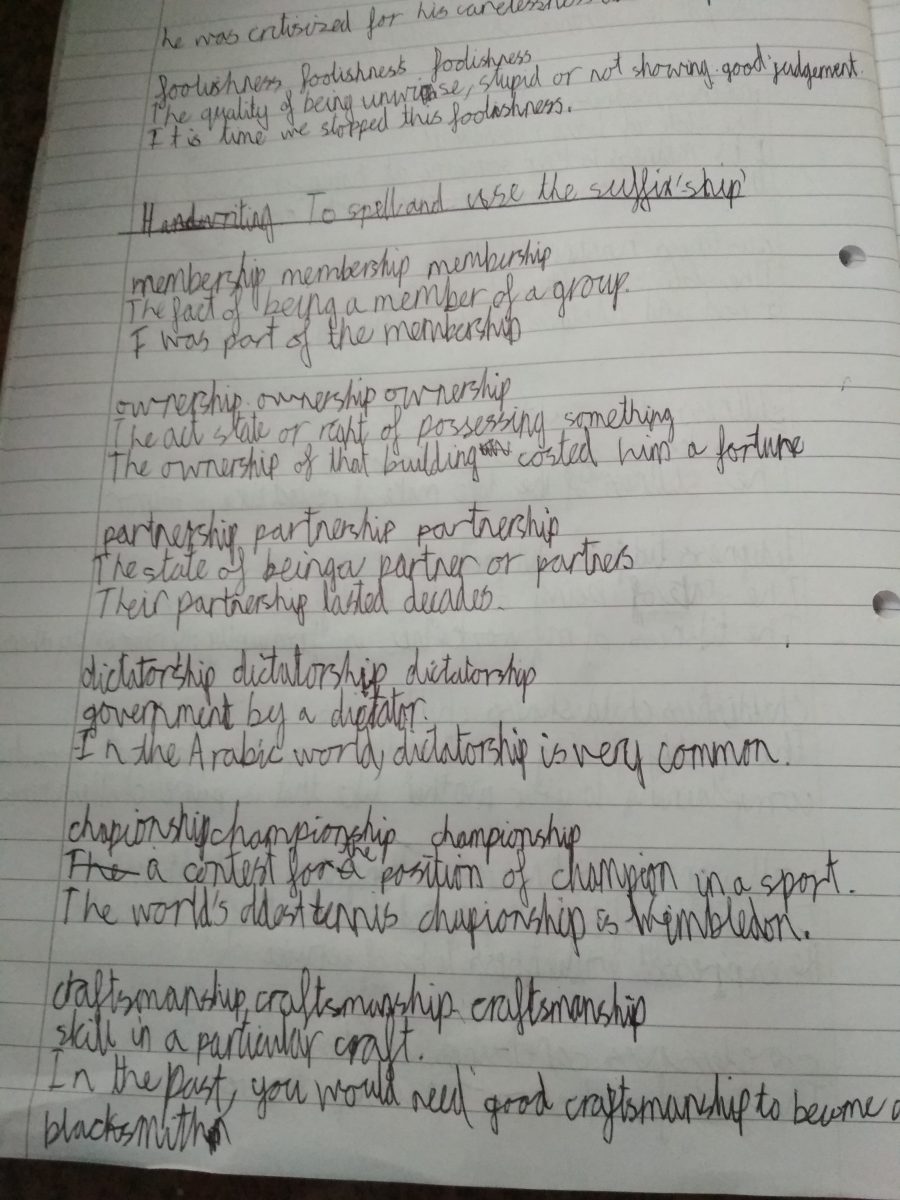 he was critisized for his carelessness
foolishness, foolishness foolishness
The quality of being unwise, stupid or not showing good judgement.
It is time we stopped this foolishness.
Handwriting To spell and use the suffix 'ship'
membership, membership membership
The fact of being a member of a group.
I was part of the membership
ownership. ownership ownership
The act state or right of possessing something
The ownership of that building costed him a fortune
partnership partnership partnership
The state of being a partner or partners
Their partnership lasted decades.
dictatorship dictatorship dictatorship
government by a dictator.
In the Arabic world, dictatorship is very common.
chapionship, championship championship
The a contest for the position of champion in a sport.
The world's oldest tennis chapionship is Wimbledon.
craftsmanship, craftsmanship craftsmanship
skill in a particular craft.
In the past, you would need good craftsmanship to become a
blacksmith